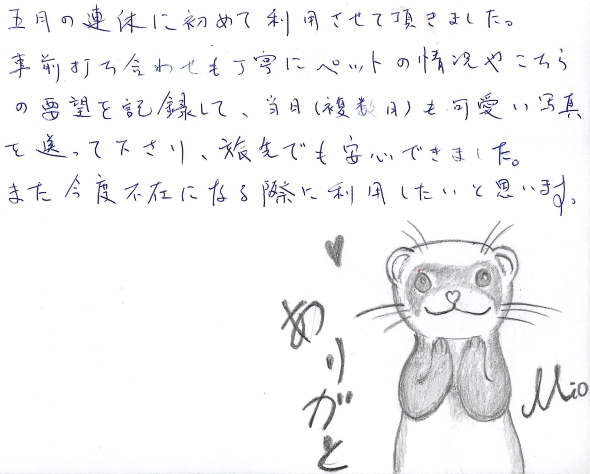 五月の連休に初めて利用させて頂きました。
事前打ち合わせも丁寧にペットの情況やこちら
の要望を記録して、当日(複数日)も可愛い写真
を送って下さり、旅先でも安心できました。
また今度不在になる際に利用したいと思います。
ありがと
Mio